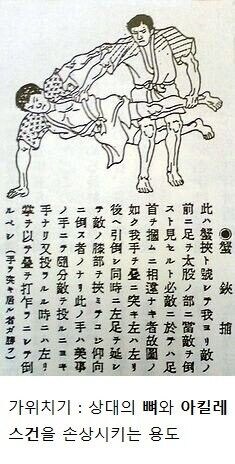 ●蟹鋏捕
此ハ蟹挾ト號シテ我ヨリ敵ノ
前ニ足ヲ太股ノ部ニ當テ敵倒
スト見セルト必敵ニ於テハ足
首ヲ摑ムニ相違ナキ者故圖ノ
如ク我手ヲ疊ニ突キ左ハ左リ
後ヘ引倒シ同時ニ左足ヲ延シ
テ敵ノ膝部ヲ挾ミテコジ仰向
ニ倒ス者ノナリ此ノ手ハ美事
ノ手ニテ隨分敵ヲ投ルニヨキ
手ナリ又投ラルル時ニハ左リ
掌ヲ以テ疊ヲ打乍ラニテ倒
ルベシ（手ヲ突キ居ル者ガ勝ヲ）
가위치기 : 상대의 뼈와 아킬레
스건을 손상시키는 용도